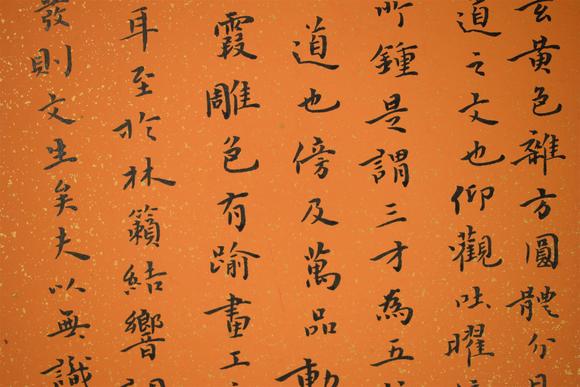 玄黃色雜方圓體分
道之文也仰觀吐曜
所鍾是謂三才為五
道也傍及萬品動
霞雕色有踰畫工
耳至於林籟結響
發則文生矣夫以無識